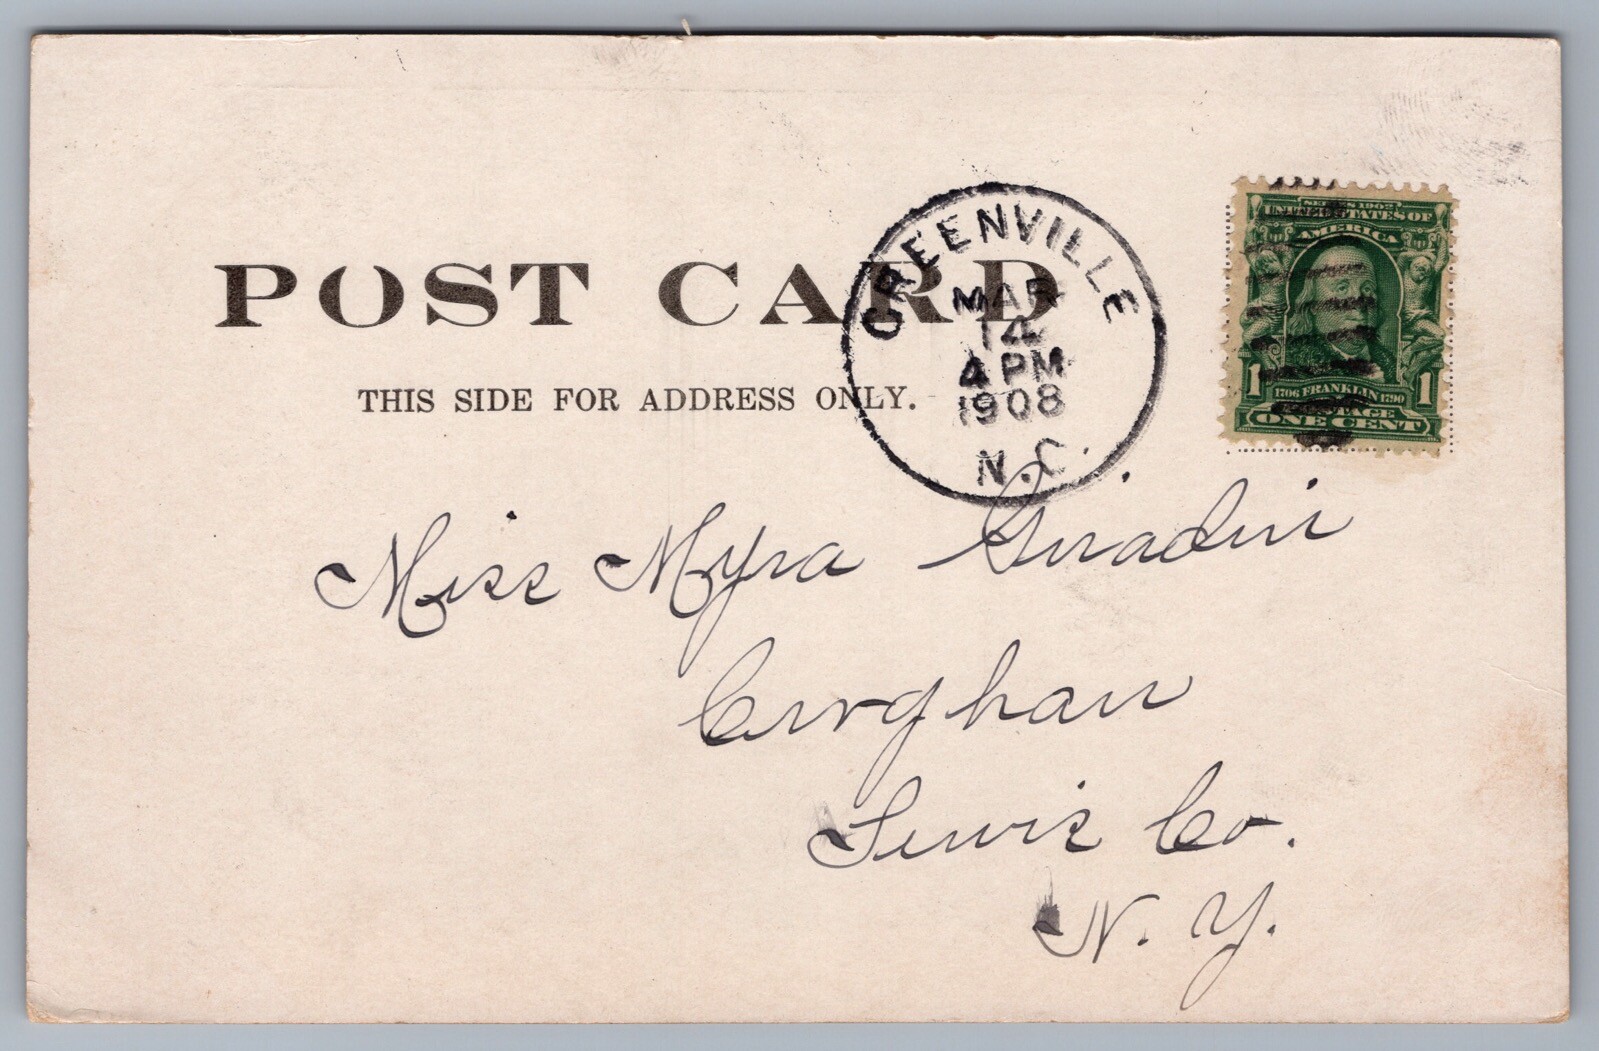 POST CARD
THIS SIDE FOR ADDRESS ONLY.
GREENVILLE
MAR
14
4 PM
1908
N.C.
SERIES 1902
UNITED STATES OF
AMERICA
1 1706 FRANKLIN 1790 1
POSTAGE
ONE CENT
Miss Myra Giradin
Croghan
Lewis Co.
N. Y.